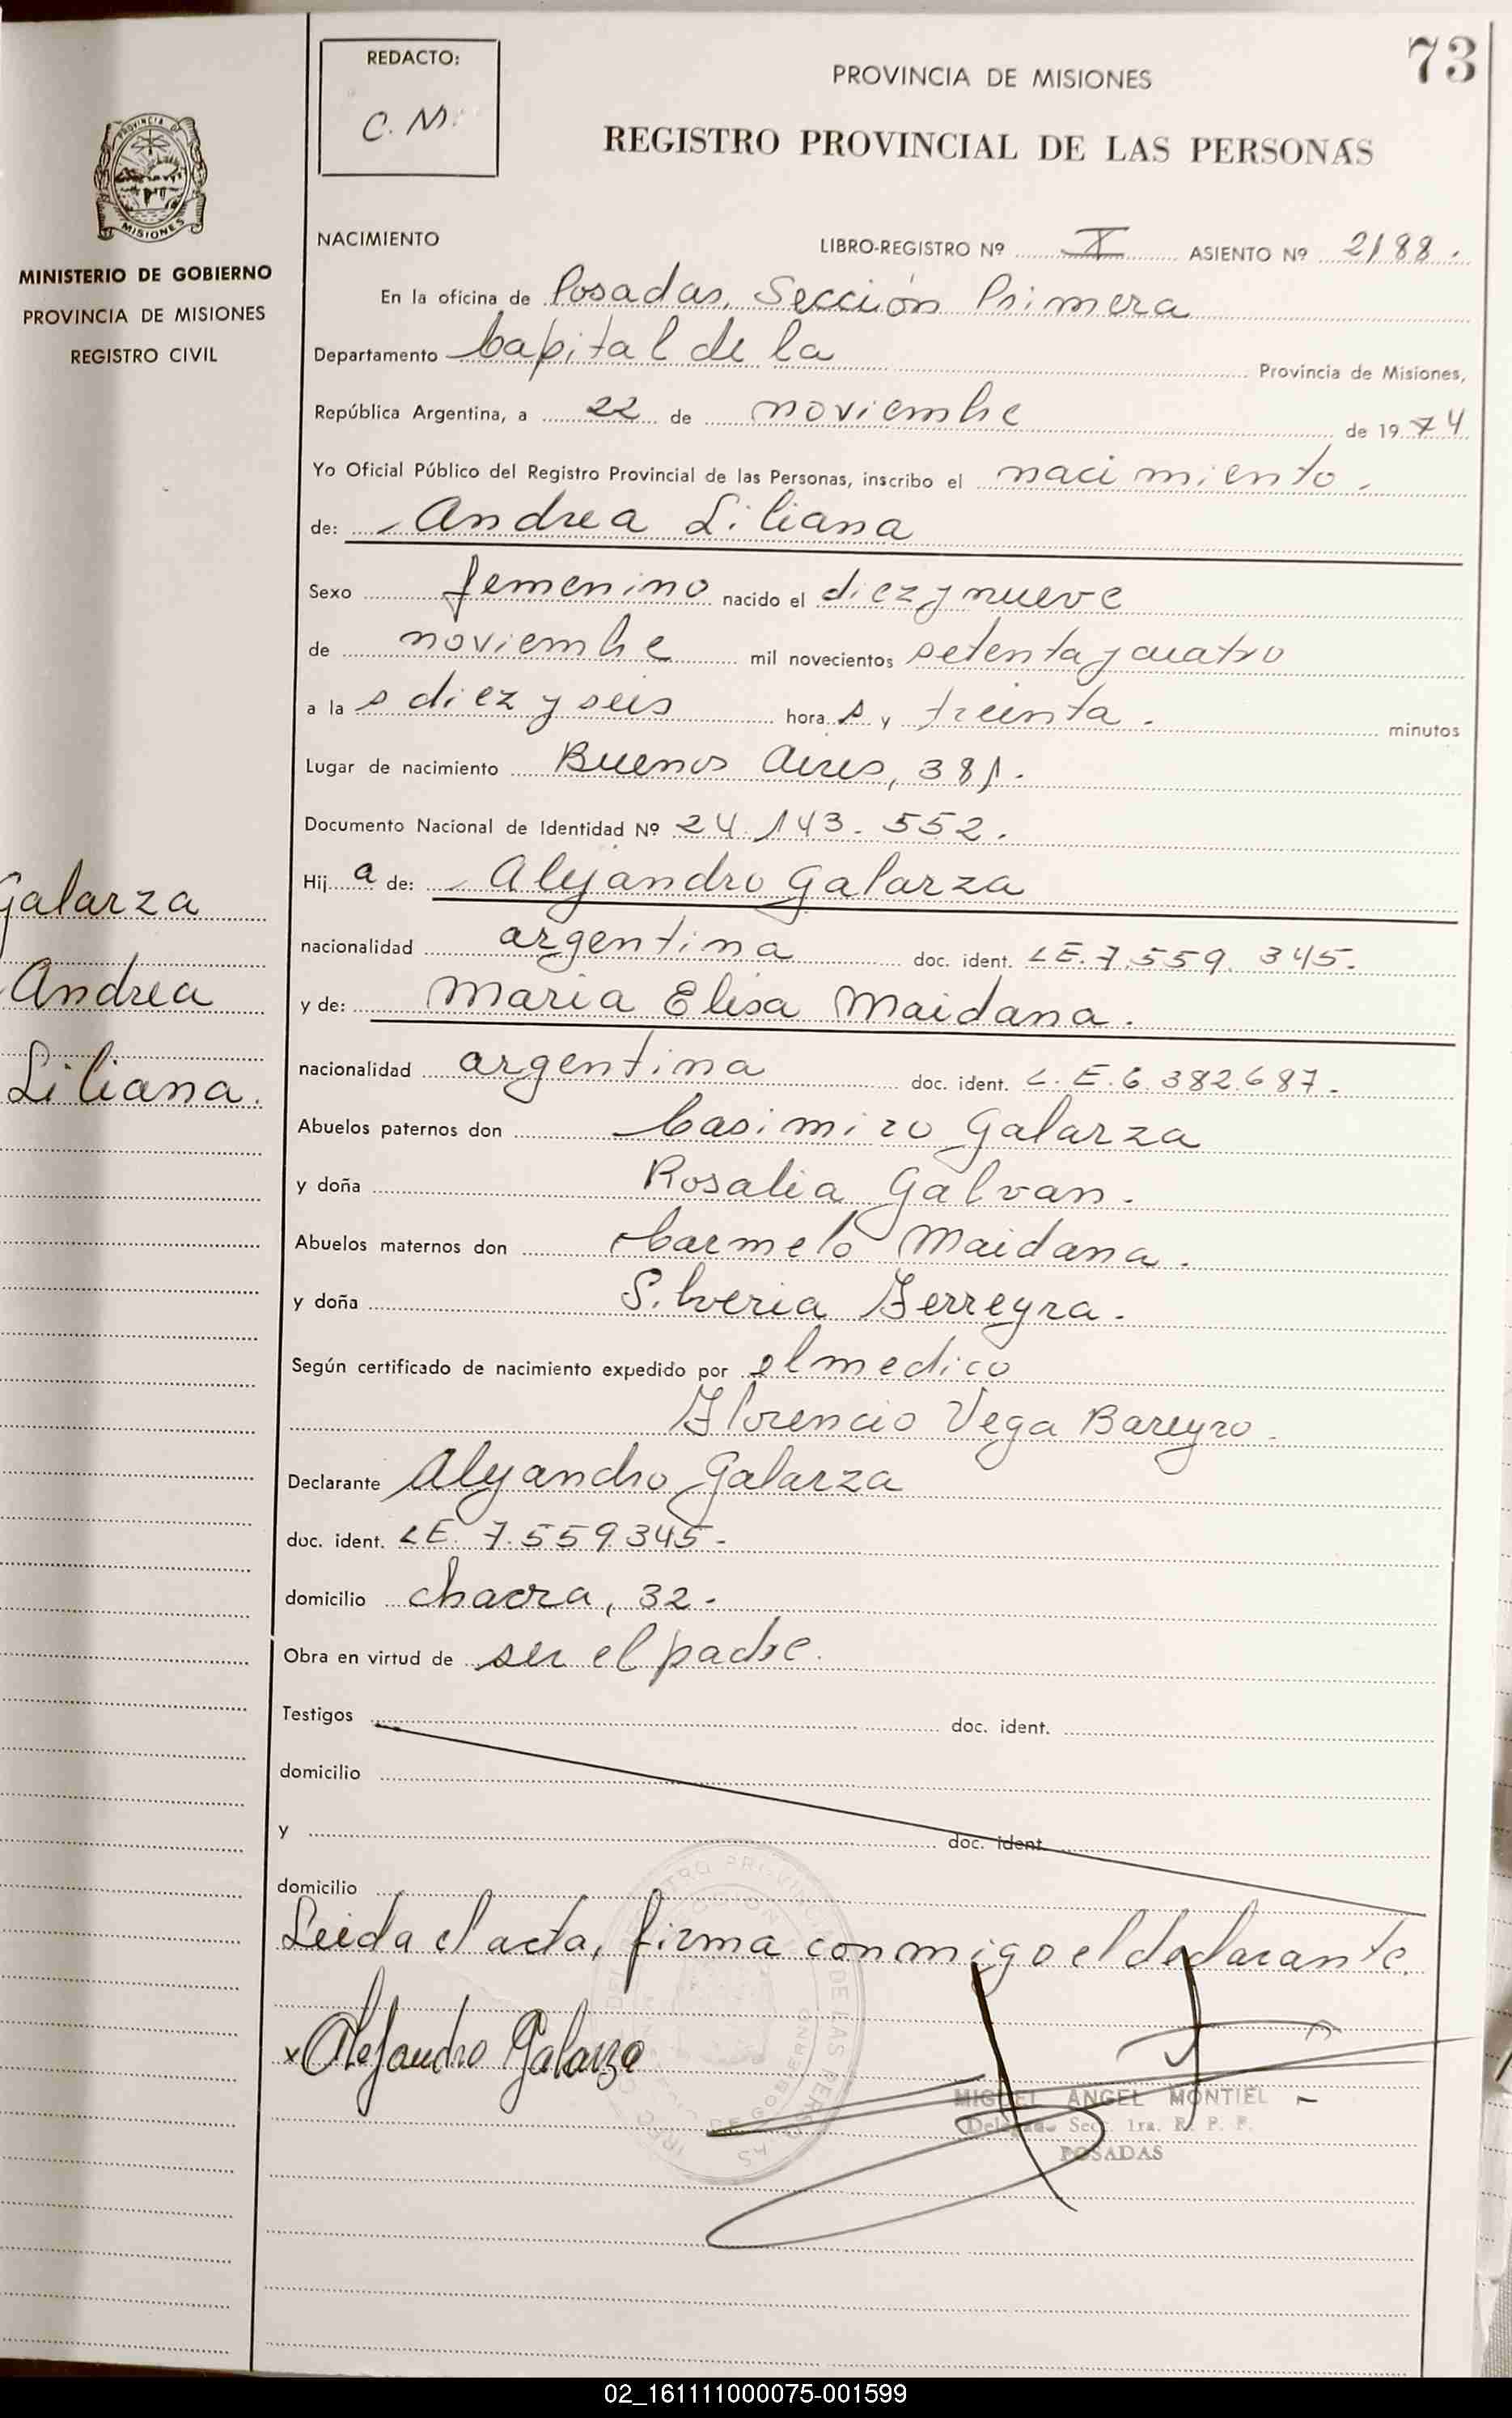 73
REDACTO:
C. M.
PROVINCIA DE MISIONES
REGISTRO PROVINCIAL DE LAS PERSONAS
PROVINCIA DE
MISIONES
MINISTERIO DE GOBIERNO
PROVINCIA DE MISIONES
REGISTRO CIVIL
NACIMIENTO LIBRO-REGISTRO Nº X ASIENTO Nº 2188.
En la oficina de Posadas, Sección Primera
Departamento Capital de la Provincia de Misiones,
República Argentina, a 22 de noviembre de 1974
Yo Oficial Público del Registro Provincial de las Personas, inscribo el nacimiento.
de: Andrea Liliana
Sexo femenino nacido el diez y nueve
de noviembre mil novecientos setenta y cuatro
a la s diez y seis hora s y treinta. minutos
Lugar de nacimiento Buenos Aires, 381.
Documento Nacional de Identidad Nº 24.143.552.
Hij a de: Alejandro Galarza
nacionalidad argentina doc. ident. LE. 7.559.345.
y de: Maria Elisa Maidana.
nacionalidad argentina doc. ident. L.E. 6.382.687.
Abuelos paternos don Casimiro Galarza
y doña Rosalia Galvan.
Abuelos maternos don Carmelo Maidana.
y doña Silveria Ferreyra.
Según certificado de nacimiento expedido por el medico
Florencio Vega Bareyro.
Declarante Alejandro Galarza
doc. ident. LE. 7.559.345-
domicilio chacra, 32.
Obra en virtud de ser el padre.
Testigos doc. ident.
domicilio
y doc. ident.
domicilio
Leida el acta, firma conmigo el declarante.
x Alejandro Galarza
MIGUEL ANGEL MONTIEL
Delegado Secc. 1ra. R. P. P.
POSADAS
Galarza
Andrea
Liliana.
02_161111000075-001599